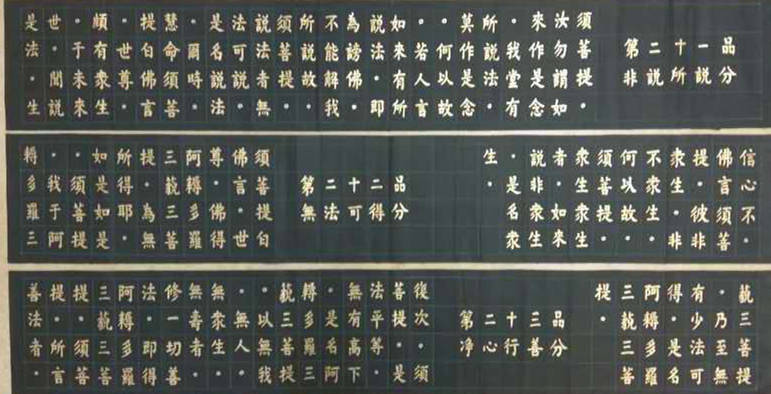 第二十一品
非説所説分
須菩提。
汝勿謂如
來作是念
。我堂有
所説法。
莫作是念
。何以故
。若人言
如來有所
説法。即
為謗佛。
不能解我
所説故。
須菩提。
説法者無
法可説説
是名説法
。爾時。
慧命須菩
提白佛言
。世尊。
頗有衆生
。于未來
世。聞説
是法。生
信心不。
佛言須菩
提。彼非
衆生。非
不衆生。
何以故。
須菩提。
衆生衆生
者。如來
説非衆生
。是名衆
生。
第二十二品
無法可得分
須菩提白
佛言。世
尊。佛得
阿耨多羅
三藐三菩
提。為無
所得耶。
如是如是
。須菩提
。我于阿
耨多羅三
藐三菩提
。乃至無
有少法可
得。是名
阿耨多羅
三藐三菩
提。
第二十三品
净心行善分
復次。須
菩提。是
法平等。
無有高下
。是名阿
耨多羅三
藐三菩提
。以無我
。無人。
無衆生。
無壽者。
修一切善
法。即得
阿耨多羅
三藐三菩
提。須菩
提。所言
善法者。